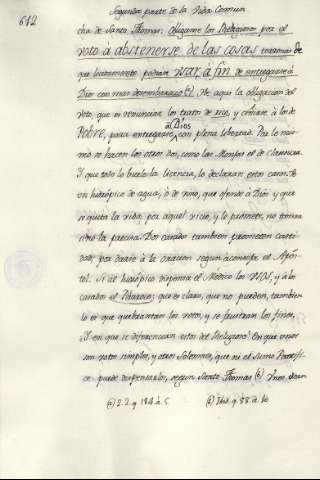 612
Segunda parte de la Vida Comun
cha de Santo Thomas: obliganse los Religiosos por el
voto à abstenerse de las cosas terrenas de
que licitamente podian usar, à fin de entregarse à
Dios con mas desembarazo. He aqui la obligacion del
voto, que es renunciar los tratos de rico, y ceñirse à los de
Pobre, para entregarse à Dios con plena libertad. Por lo mis-
mo se hacen los otros dos, como las Monjas el de clausura.
Y que todo lo burla la licencia, lo declaran estos casos. Ve
un hidropico de agua, ò de vino, que ofende à Dios y que
se quita la vida por aquel vicio, y lo promete, no tomar
sino la precisa. Dos casados tambien prometen casti-
dad, por darse à la oracion segun aconseja el Apos-
tol. Si al hidropico dispensa el Medico los
casados el Parroco; que es claro, que no pueden, tambien
lo es que quebrantan los votos, y se frustran los fines.
Y en que se diferencian estos del Religioso? En que unos
son votos simples, y otros Solemnes, que ni el Sumo Pontifi-
ce puede dispensarlos, segun siente Thomas
2. 2. q 184 à. 5
q. 88. à.